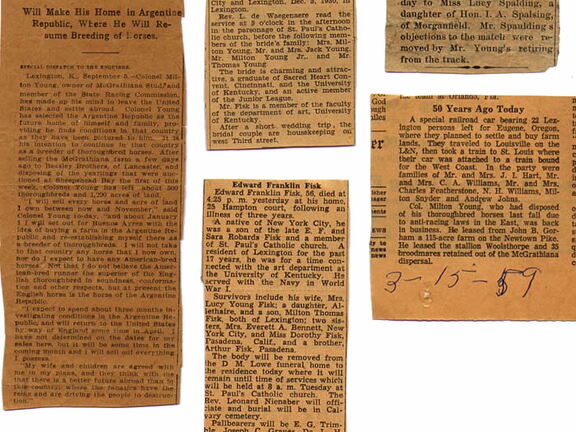 Will Make His Home in Argentine
Republic, Where He Will Re-
sume Breeding of Horses.
SPECIAL DISPATCH TO THE ENQUIRER.
Lexington, K., September 5.—Colonel Mil-
ton Young, owner of McGrathiana Stud, and
member of the State Racing Commission,
has made up his mind to leave the United
States and settle abroad. Colonel Young
has selected the Argentine Republic as the
future home of himself and family, pro-
viding he finds conditions in that country
as they have been pictured to him. It is
his intention to continue in that country
as a breeder of thoroughbred horses. After
selling the McGrathiana farm a few days
ago to Beasley Brothers, of Lancaster, and
disposing of the yearlings that were
at Sheepshead Bay the first of this
week, Colonel Young has left about 500
thoroughbreds and 1,290 acres of land.
"I will sell every horse and acre of land
I own between now and November," said
Colonel Young to-day, "and about January
I will set out for Buenos Ayres with the
idea of buying a farm in the Argentine Re-
public and re-establishing myself there as
a breeder of thoroughbreds. I will not take
to that country any horse that I now own,
nor do I expect to have any American-bred
horses. Not that I do not believe the Amer-
ican-bred runner the superior of the Eng-
lish thoroughbred in soundness, conforma-
tion and other respects, but at present the
English horse is the horse of the Argentine
Republic.
"I expect to spend about three months in-
vestigating conditions in the Argentine Re-
public and will return to the United States
by way of England some time in April. I
have not determined on the dates for my
sales here, but it will be some time in the
coming month and I will sell out everything
I possess.
"My wife and children are agreed with
me in my plans, and they think with me
that there is a better future abroad than in
this country, where the fanatics have the
reins and are driving the people to destruc-
tion."
City and Lexington, Dec. 3, 1930, in
Lexington.
Rev. L. de Waegenaere read the
service at 3 o'clock in the afternoon
in the parsonage of St. Paul's Catho-
lic church, before the following mem-
bers of the bride's family: Mrs. Mil-
ton Young, Mr. and Mrs. Jack Young,
Mr. Milton Young Jr., and Mr.
Thomas Young
The bride is charming and attrac-
tive, a graduate of Sacred Heart Con-
vent, Cincinnati, and the University
of Kentucky, and an active member
of the Junior League.
Mr. Fisk is a member of the faculty
of the department of art, University
of Kentucky.
After a short wedding trip, the
bridal couple are housekeeping on
west Third street.
Edward Franklin Fisk
Edward Franklin Fisk, 56, died at
4:25 p. m. yesterday at his home,
25 Hampton court, following an
illness of three years.
A native of New York City, he
was a son of the late E. F. and
Sara Robards Fisk and a member
of St. Paul's Catholic church. A
resident of Lexington for the past
17 years, he was for a time con-
nected with the art department at
the University of Kentucky. He
served with the Navy in World
War I.
Survivors include his wife, Mrs.
Lucy Young Fisk; a daughter, Al-
lethaire, and a son, Milton Thomas
Fisk, both of Lexington; two sis-
ters, Mrs. Everett A. Bennett, New
York City, and Miss Dorothy Fisk,
Pasadena, Calif., and a brother,
Arthur Fisk, Pasadena.
The body will be removed from
the D M. Lowe funeral home to
the residence today where it will
remain until time of services which
will be held at 8 a. m. Tuesday at
St. Paul's Catholic church. The
Rev. Leonard Nienaber will offi-
ciate and burial will be in Cal-
vary cemetery.
Pallbearers will be E. G. Trim-
ble, Joseph C. Graves,
day to Miss Lucy Spalding, a
daughter of Hon. I. A. Spalsing,
of Morganfield. Mr. Spaulding's
objections to the match were re-
moved by Mr. Young's retiring
from the track.
the team at Orlando, Fla.
50 Years Ago Today
A special railroad car bearing 22 Lex-
ington persons left for Eugene, Oregon,
where they planned to settle and buy farm
lands. They traveled to Louisville on the
L&N, then took a train to St. Louis where
their car was attached to a train bound
for the West Coast. In the party were
families of Mr. and Mrs. J. I. Hart, Mr.
and Mrs. C. A. Williams, Mr. and Mrs.
Charles Featherstone, N. H. Williams, Mil-
ton Snyder and Andrew Johns.
Col. Milton Young, who had disposed
of his thoroughbred horses last fall due
to anti-racing laws in the East, was back
in business. He leased from John B. Gor-
ham a 115-acre farm on the Newtown Pike.
He leased the stallion Woolsthorpe and 35
broodmares retained out of the McGrathiana
dispersal.
3-15-59